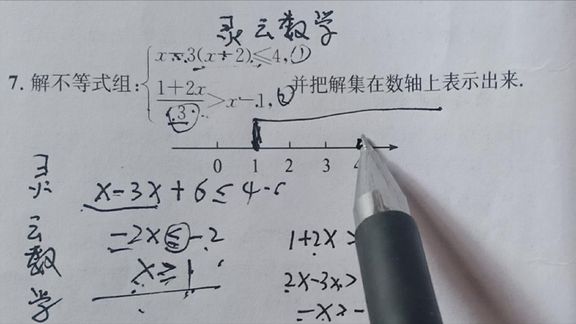 灵云数学
x-3(x+2)≤4,①
7.解不等式组:
1+2x
3
>x-1,②
并把解集在数轴上表示出来.
0 1 2 3
灵云数学
x-3x+6≤4-6
-2x≤-2
x≥1
1+2x>
2x-3x>
-x>-